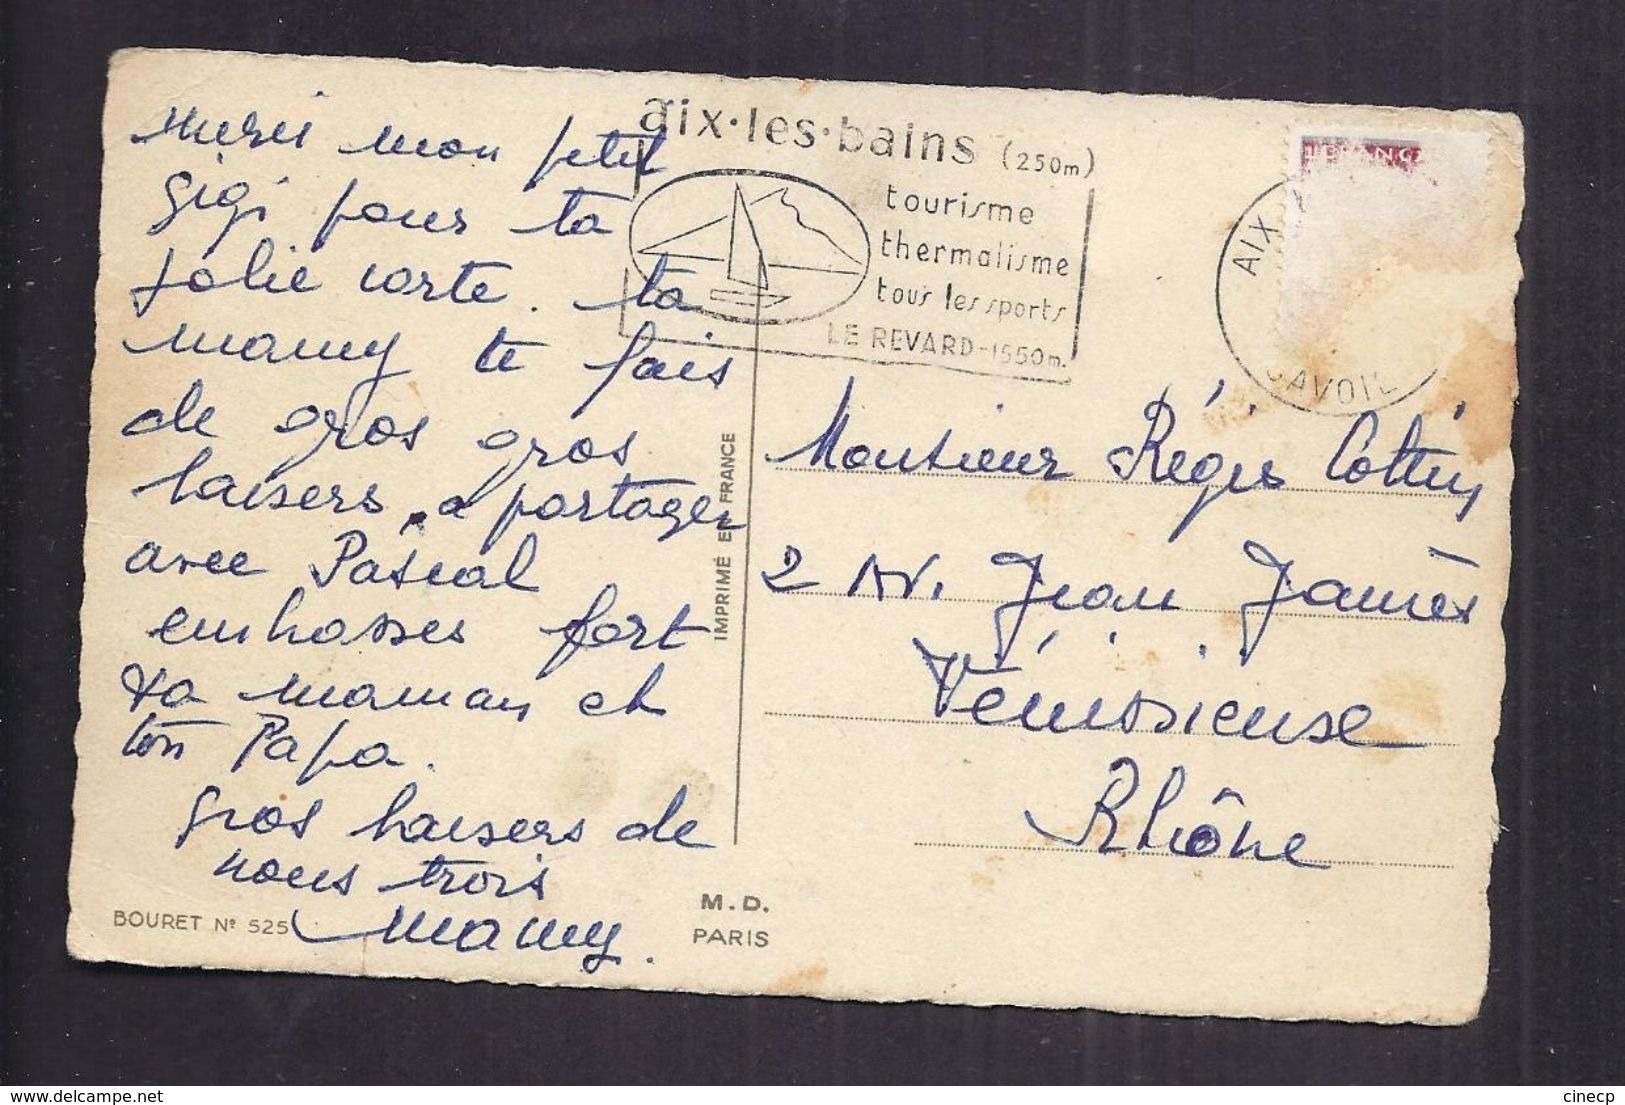 merci mon petit
gigi pour ta
jolie carte. ta
mamy te fais
de gros gros
baisers a partager
avec Pascal
embrasses fort
ta maman et
ton Papa.
gros baisers de
nous trois
mamy.
BOURET Nº 525
M.D.
PARIS
IMPRIMÉ EN FRANCE
aix·les·bains (250m)
tourisme
thermalisme
tous les sports
LE REVARD-1550m.
AIX
SAVOIE
Monsieur Régis Cottin
2 AV. Jean Jaurès
Vénissieuse
Rhône
delcampe.net
cinecp